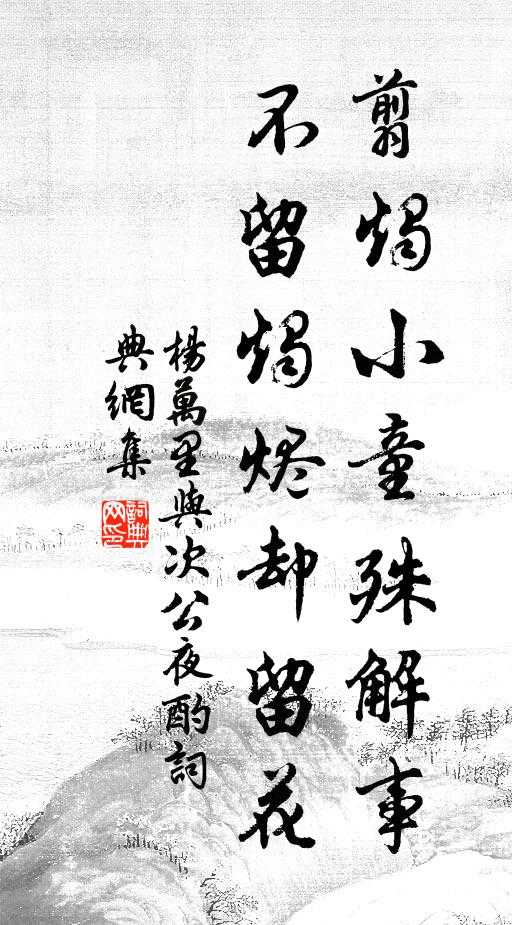 翦燭小童殊解事
不留燭烬却留花
楊萬里與次公夜酌詞
典網集
詞典網印